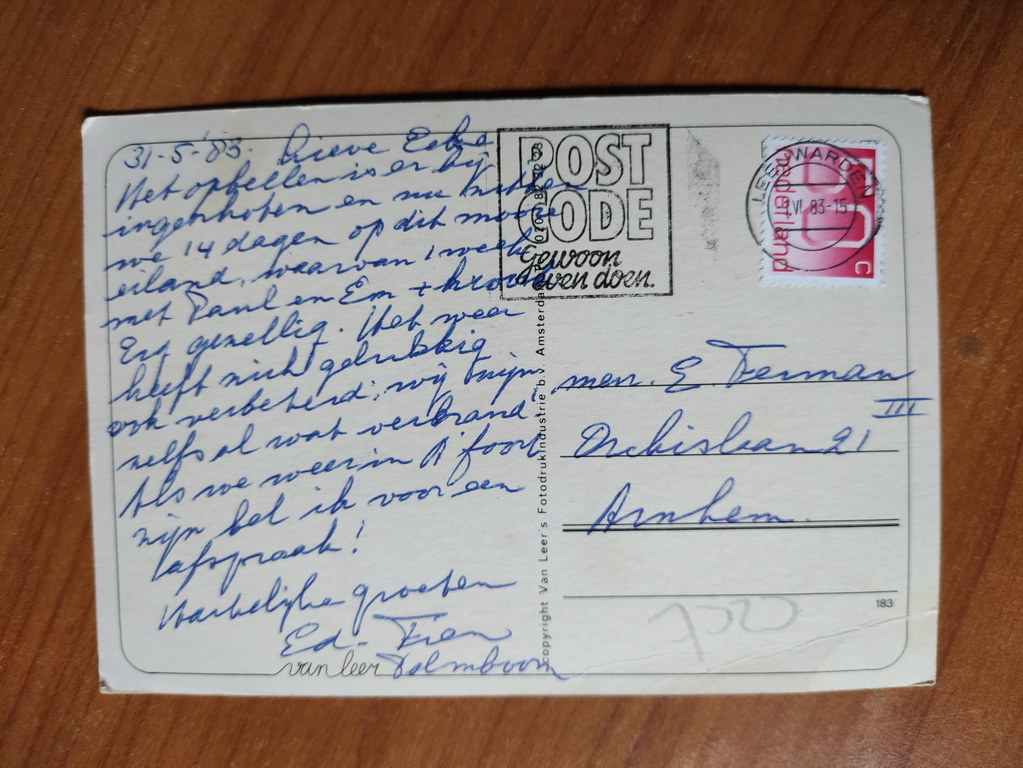 31-5-'83. Lieve
Het opbellen is er bij
ingeschoten en nu zitten
we 14 dagen op dit mooie
eiland, waarvan 1 week
met Paul en Em + kroost
Erg gezellig. Het weer
heeft zich gelukkig
ook verbeterd; wij zijn
zelfs al wat verbrand
Als we weer in A'foort
zijn bel ik voor een
afspraak!
Hartelijke groeten
Ed - Fien
Palmboom
van leer
copyright Van Leer's Fotodrukindustrie b.v. Amsterdam
POST
CODE
Gewoon
even doen.
LEEUWARDEN
1 VI 83-15
nederland
C
mevr. E Ferman
21 III
Arnhem.
183